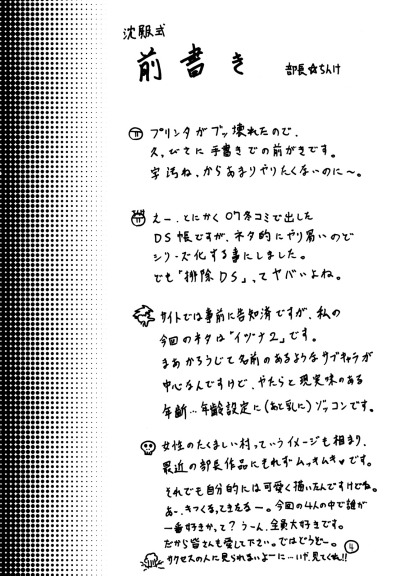 沈服式
前書き 部長☆ちんけ
プリンタがブッ壊れたので、
久々びてに手書きでの前がきです。
字汚ね、からあまりやりたくないのに〜。
えー、とにかく07冬コミで出した
DS帳ですが、ネタ的にやり易いので
シリーズ化する事にしました。
でも「排除DS」、てヤバいよね。
サイトでは事前に告知済ですが、私の
今回のネタは「イヅナ2」です。
まあかろうじて名前のあるようなサブキャラが
中心なんですけど、やたらと現実味のある
年齢…年齢設定に(あと乳に)ゾッコンです。
女性のたくましい村っていうイメージも相まり、
最近の部長作品にもれずムッキムキ♥です。
それでも自分的には可愛く描いたんですけどね。
あー、きつくる、てきたなー。今回の4人の中で誰が
一番好きかって?うーん、全員大好きです。
だから皆さんも愛して下さい。ではどうどー。
サクセスの人に見られないよーに…いや、見てくれ!!
4